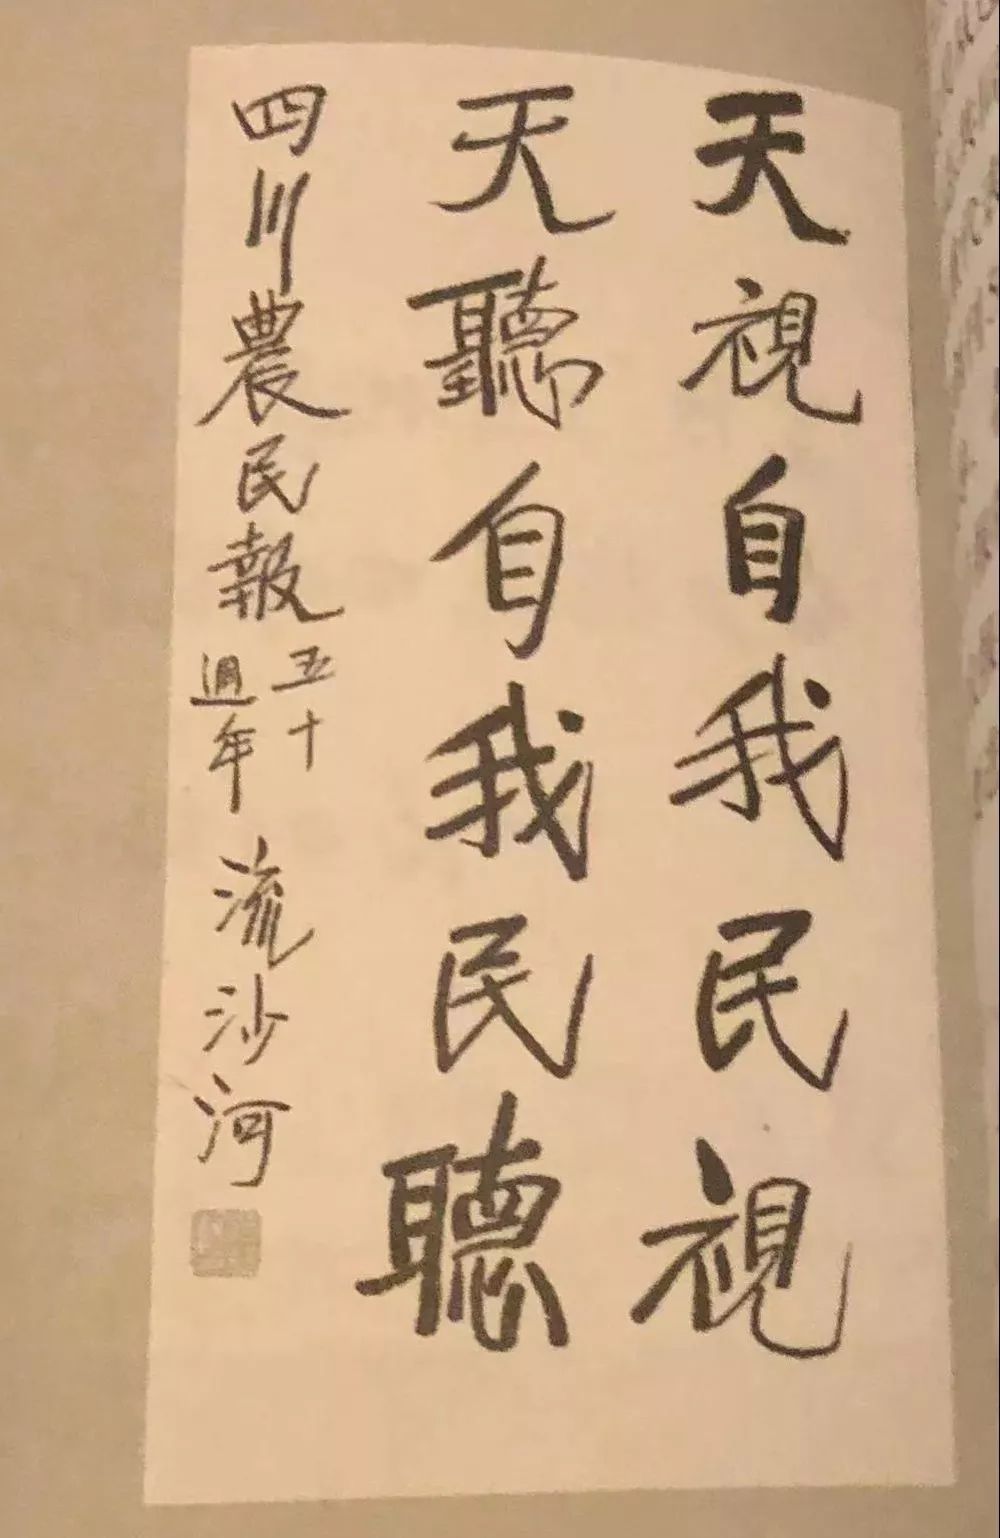 天視自我民視
天聽自我民聽
四川農民報五十週年 流沙河